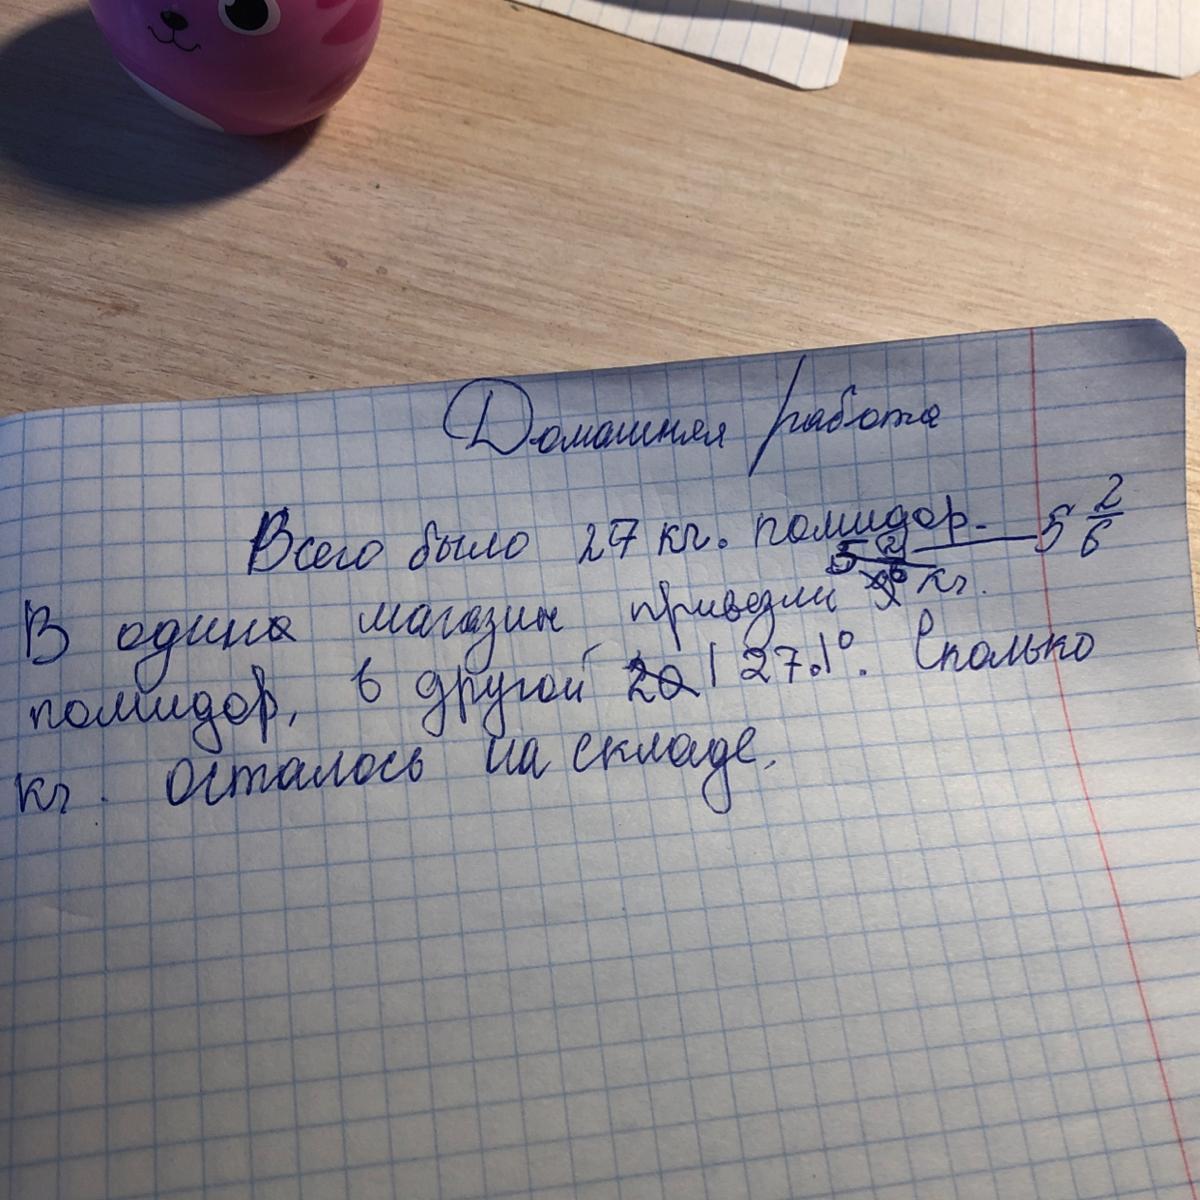 Домашняя работа
Всего было 27 кг. помидор.
В один магазин привезли 5 2/6 кг.
помидор, в другой 27. Сколько
кг. осталось на складе.